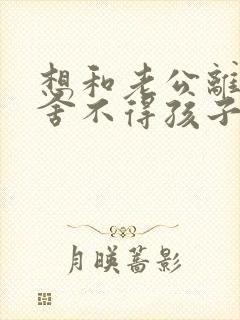 想和老公離
舍不得孩子
月暎蔷影